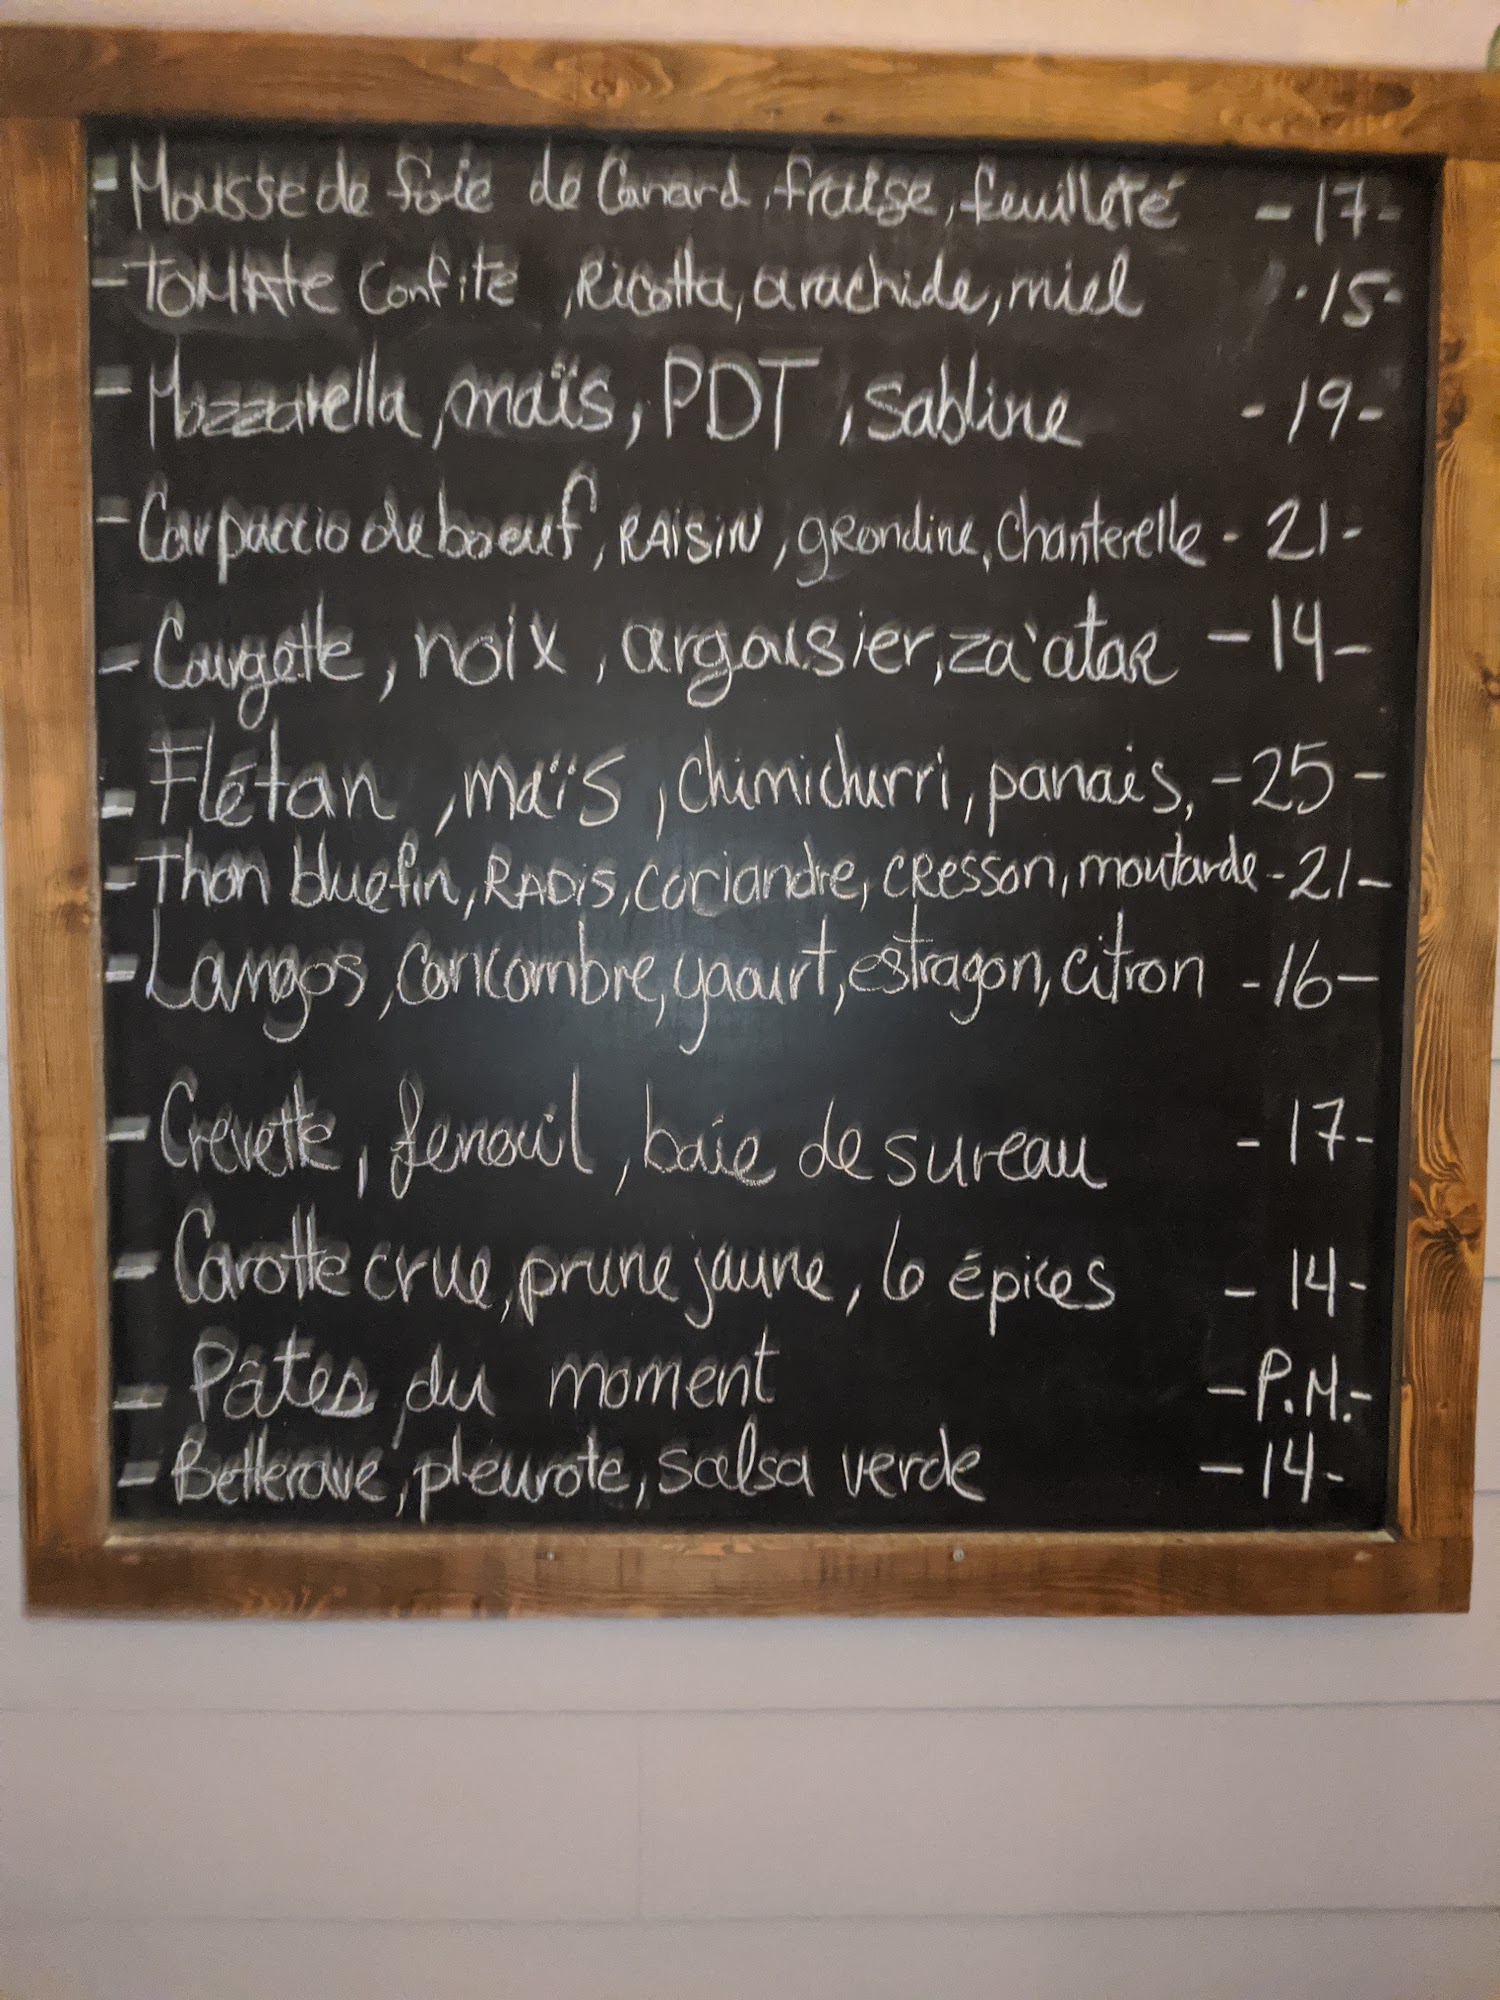 - Mousse de foie de Canard, fraise, feuilleté - 17 -
- TOMATE Confite, Ricotta, arachide, miel - 15 -
- Mozzarella, maïs, PDT, sabline - 19 -
- Carpaccio de boeuf, RAISIN, grondine, chanterelle - 21 -
- Courgette, noix, argousier, za'atar - 14 -
- Flétan, maïs, chimichurri, panais, - 25 -
- Thon bluefin, RADIS, coriandre, cresson, moutarde - 21 -
- Langos, concombre, yaourt, estragon, citron - 16 -
- Crevette, fenouil, baie de sureau - 17 -
- Carotte crue, prune jaune, 6 épices - 14 -
- Pâtes du moment - P.M. -
- Betterave, pleurote, salsa verde - 14 -